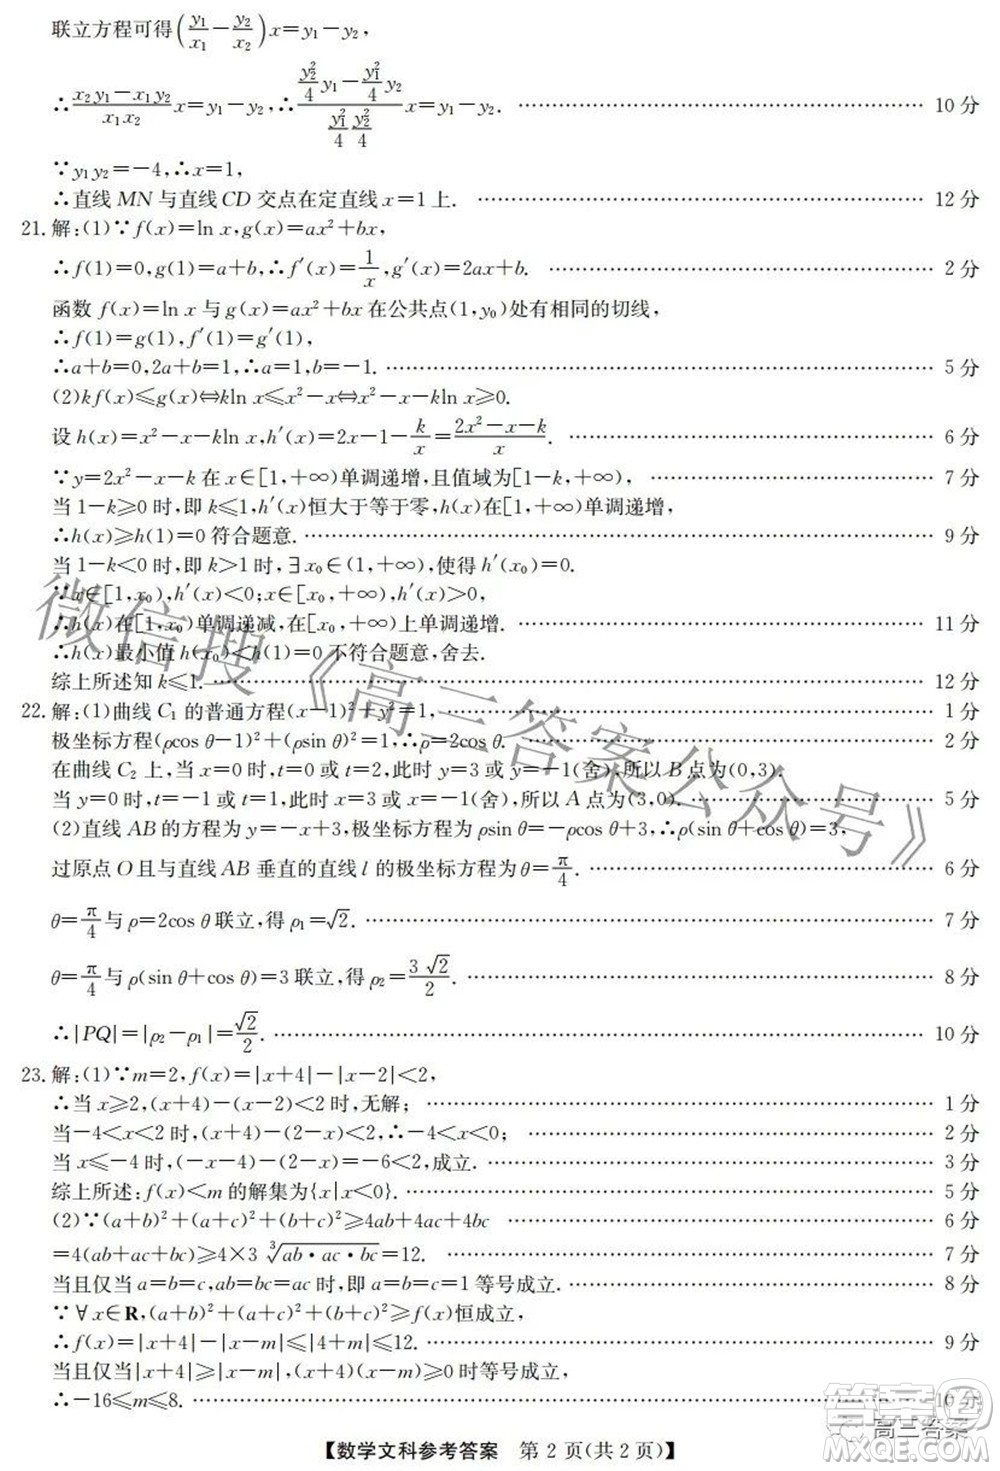 联立方程可得(y₁/x₁－y₂/x₂)x＝y₁－y₂,
∴(x₂y₁－x₁y₂)/(x₁x₂) x＝y₁－y₂,∴(y₂²/4 y₁－y₁²/4 y₂)/(y₁²/4 y₂²/4) x＝y₁－y₂. …… 10 分
∵y₁y₂＝－4,∴x＝1,
∴直线 MN 与直线 CD 交点在定直线 x＝1 上. …… 12 分
21. 解:(1)∵f(x)＝ln x,g(x)＝ax²＋bx,
∴f(1)＝0,g(1)＝a＋b,∴f′(x)＝1/x,g′(x)＝2ax＋b. …… 2 分
函数 f(x)＝ln x 与 g(x)＝ax²＋bx 在公共点(1,y₀)处有相同的切线,
∴f(1)＝g(1),f′(1)＝g′(1),
∴a＋b＝0,2a＋b＝1,∴a＝1,b＝－1. …… 5 分
(2)kf(x)≤g(x)⇔kln x≤x²－x⇔x²－x－kln x≥0.
设 h(x)＝x²－x－kln x,h′(x)＝2x－1－k/x＝(2x²－x－k)/x. …… 6 分
∵y＝2x²－x－k 在 x∈[1,＋∞)单调递增,且值域为[1－k,＋∞), …… 7 分
当 1－k≥0 时,即 k≤1,h′(x)恒大于等于零,h(x)在[1,＋∞)单调递增,
∴h(x)≥h(1)＝0 符合题意. …… 9 分
当 1－k<0 时,即 k>1 时,∃x₀∈(1,＋∞),使得 h′(x₀)＝0.
∵x∈[1,x₀),h′(x)<0;x∈[x₀,＋∞),h′(x)>0,
∴h(x)在[1,x₀)单调递减,在[x₀,＋∞)上单调递增. …… 11 分
∴h(x)最小值 h(x₀)<h(1)＝0 不符合题意,舍去.
综上所述知 k≤1. …… 12 分
22. 解:(1)曲线 C₁ 的普通方程(x－1)²＋y²＝1, …… 1 分
极坐标方程(ρcos θ－1)²＋(ρsin θ)²＝1,∴ρ＝2cos θ. …… 2 分
在曲线 C₂ 上,当 x＝0 时,t＝0 或 t＝2,此时 y＝3 或 y＝－1(舍),所以 B 点为(0,3).
当 y＝0 时,t＝－1 或 t＝1,此时 x＝3 或 x＝－1(舍),所以 A 点为(3,0). …… 5 分
(2)直线 AB 的方程为 y＝－x＋3,极坐标方程为 ρsin θ＝－ρcos θ＋3,∴ρ(sin θ＋cos θ)＝3,
过原点 O 且与直线 AB 垂直的直线 l 的极坐标方程为 θ＝π/4. …… 6 分
θ＝π/4 与 ρ＝2cos θ 联立,得 ρ₁＝√2. …… 7 分
θ＝π/4 与 ρ(sin θ＋cos θ)＝3 联立,得 ρ₂＝3√2/2. …… 8 分
∴|PQ|＝|ρ₂－ρ₁|＝√2/2. …… 10 分
23. 解:(1)∵m＝2,f(x)＝|x＋4|－|x－2|<2,
∴当 x≥2,(x＋4)－(x－2)<2 时,无解; …… 1 分
当－4<x<2 时,(x＋4)－(2－x)<2,∴－4<x<0; …… 2 分
当 x≤－4 时,(－x－4)－(2－x)＝－6<2,成立. …… 3 分
综上所述:f(x)<m 的解集为{x|x<0}. …… 5 分
(2)∵(a＋b)²＋(a＋c)²＋(b＋c)²≥4ab＋4ac＋4bc …… 6 分
＝4(ab＋ac＋bc)≥4×3 ∛(ab·ac·bc)＝12. …… 7 分
当且仅当 a＝b＝c,ab＝bc＝ac 时,即 a＝b＝c＝1 等号成立. …… 8 分
∵∀x∈R,(a＋b)²＋(a＋c)²＋(b＋c)²≥f(x)恒成立,
∴f(x)＝|x＋4|－|x－m|≤|4＋m|≤12. …… 9 分
当且仅当|x＋4|≥|x－m|,(x＋4)(x－m)≥0 时等号成立,
∴－16≤m≤8. …… 10 分
【数学文科参考答案 第 2 页(共 2 页)】
微信搜《高三答案公众号》
答案圈
高三答案
MXQE.COM